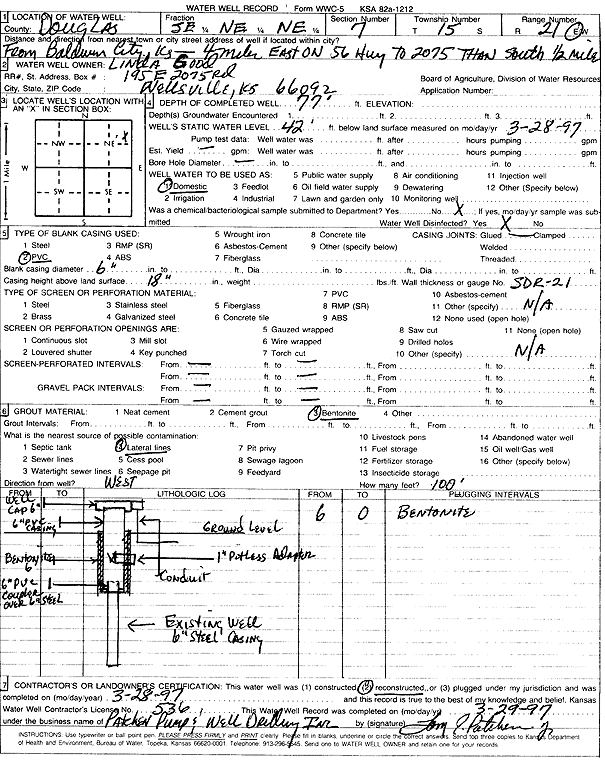 WATER WELL RECORD Form WWC-5 KSA 82a-1212
1 LOCATION OF WATER WELL: Fraction Section Number Township Number Range Number
County: Douglas SE ¼ NE ¼ NE ¼ 7 T 15 S R 21 E/W
Distance and direction from nearest town or city street address of well if located within city?
From Baldwin City, Ks - 4 miles East on 56 Hwy to 2075 Than South ½ mile
2 WATER WELL OWNER: Linda Good
RR#, St. Address, Box # : 195 E 2075 Rd Board of Agriculture, Division of Water Resources
City, State, ZIP Code : Wellsville, KS 66092 Application Number:
3 LOCATE WELL'S LOCATION WITH AN "X" IN SECTION BOX:
N
NW NE X
W E
SW SE
S
1 Mile
4 DEPTH OF COMPLETED WELL 77' ft. ELEVATION:
Depth(s) Groundwater Encountered 1. ft. 2. ft. 3. ft.
WELL'S STATIC WATER LEVEL 42' ft. below land surface measured on mo/day/yr 3-28-97
Pump test data: Well water was ft. after hours pumping gpm
Est. Yield — gpm: Well water was ft. after hours pumping gpm
Bore Hole Diameter — in. to ft., and in. to ft.
WELL WATER TO BE USED AS: 5 Public water supply 8 Air conditioning 11 Injection well
1 Domestic 3 Feedlot 6 Oil field water supply 9 Dewatering 12 Other (Specify below)
2 Irrigation 4 Industrial 7 Lawn and garden only 10 Monitoring well
Was a chemical/bacteriological sample submitted to Department? Yes No X If yes, mo/day/yr sample was submitted
Water Well Disinfected? Yes X No
5 TYPE OF BLANK CASING USED: 5 Wrought iron 8 Concrete tile CASING JOINTS: Glued — Clamped
1 Steel 3 RMP (SR) 6 Asbestos-Cement 9 Other (specify below) Welded
2 PVC 4 ABS 7 Fiberglass Threaded
Blank casing diameter 6" in. to ft., Dia in. to ft., Dia in. to ft.
Casing height above land surface 18" in., weight lbs./ft. Wall thickness or gauge No. SDR-21
TYPE OF SCREEN OR PERFORATION MATERIAL: 7 PVC 10 Asbestos-cement
1 Steel 3 Stainless steel 5 Fiberglass 8 RMP (SR) 11 Other (specify) N/A
2 Brass 4 Galvanized steel 6 Concrete tile 9 ABS 12 None used (open hole)
SCREEN OR PERFORATION OPENINGS ARE: 5 Gauzed wrapped 8 Saw cut 11 None (open hole)
1 Continuous slot 3 Mill slot 6 Wire wrapped 9 Drilled holes
2 Louvered shutter 4 Key punched 7 Torch cut 10 Other (specify) N/A
SCREEN-PERFORATED INTERVALS: From — ft. to — ft., From ft. to ft.
From — ft. to — ft., From ft. to ft.
GRAVEL PACK INTERVALS: From — ft. to — ft., From ft. to ft.
From — ft. to — ft., From ft. to ft.
6 GROUT MATERIAL: 1 Neat cement 2 Cement grout 3 Bentonite 4 Other
Grout Intervals: From ft. to ft., From ft. to ft., From ft. to ft.
What is the nearest source of possible contamination: 10 Livestock pens 14 Abandoned water well
1 Septic tank 4 Lateral lines 7 Pit privy 11 Fuel storage 15 Oil well/Gas well
2 Sewer lines 5 Cess pool 8 Sewage lagoon 12 Fertilizer storage 16 Other (specify below)
3 Watertight sewer lines 6 Seepage pit 9 Feedyard 13 Insecticide storage
Direction from well? West How many feet? 100'
FROM TO LITHOLOGIC LOG FROM TO PLUGGING INTERVALS
6 0 Bentonite
Well Cap 6"
6" PVC Casing
Ground Level
Bentonite 6
1" Pitless Adapter
Conduit
6" PVC Coupler over 6" Steel
Existing Well 6" Steel Casing
7 CONTRACTOR'S OR LANDOWNER'S CERTIFICATION: This water well was (1) constructed, (2) reconstructed, or (3) plugged under my jurisdiction and was
completed on (mo/day/year) 3-28-97 and this record is true to the best of my knowledge and belief. Kansas
Water Well Contractor's License No. 536 This Water Well Record was completed on (mo/day/yr) 3-29-97
under the business name of Patchen Pump & Well Drilling Inc by (signature) Tom E Patchen Jr
INSTRUCTIONS: Use typewriter or ball point pen. PLEASE PRESS FIRMLY and PRINT clearly. Please fill in blanks, underline or circle the correct answers. Send top three copies to Kansas Department
of Health and Environment, Bureau of Water, Topeka, Kansas 66620-0001. Telephone: 913-296-5545. Send one to WATER WELL OWNER and retain one for your records.